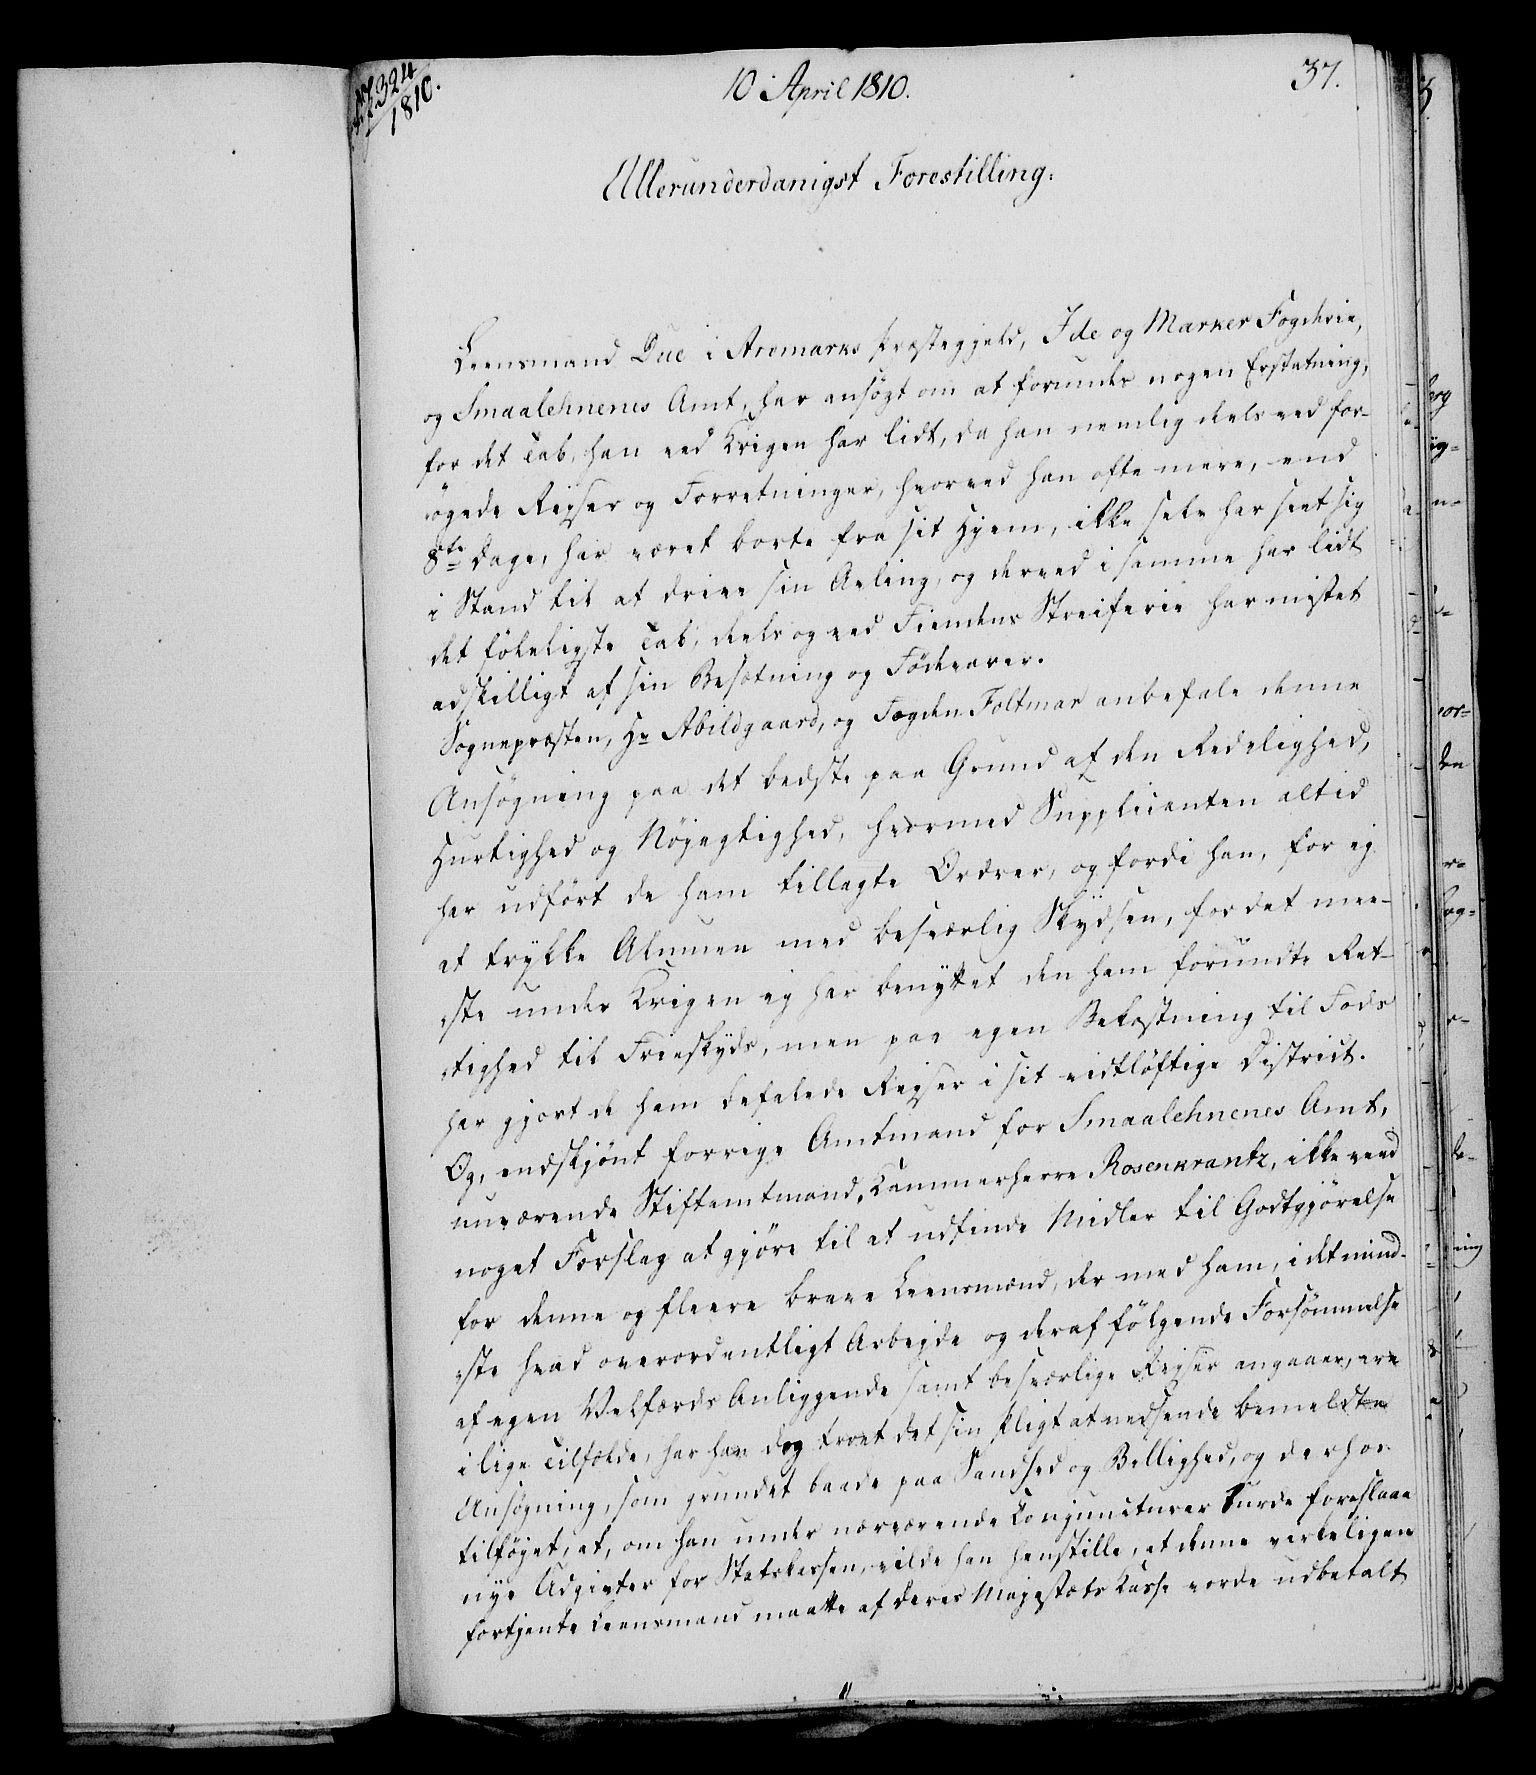 No 324
1810.
10 April 1810.
37.
Allerunderdanigst Forestilling.
Leensmand Due i Aremarks Præstegjeld, Ide og Marker Fogderie,
og Smaalehnenes Amt, har ansøgt om at forundes nogen Erstatning,
for det Tab, han ved Krigen har lidt, da han nemlig deels ved for-
øgede Rejser og Forretninger, hvorved han ofte mere, end
8te Dage, har været borte fra sit Hjem, ikke selv har seet sig
i Stand til at drive sin Avling, og derved i samme har lidt
det föleligste Tab, deels og ved Fiendens Streiferie har mistet
adskilligt af sin Besætning og Fødevarer.
Sognepræsten, Hr Abildgaard, og Fogden Foltmar anbefale denne
Ansøgning paa det bedste paa Grund af den Redelighed,
Hurtighed og Nøjagtighed, hvormed Supplicanten altid
har udført de ham tillagte Ordrer, og fordi han, for ej
at trykke Almuen med besværlig Skydsen, for det mee-
ste under Krigen ej har benyttet den ham forundte Ret-
tighed til Frieskyds, men paa egen Bekostning til Fods
har gjort de ham befalede Rejser i sit vidtløftige District.
Og, endskjönt forrige Amtmand for Smaalehnenes Amt,
nuværende Stiftamtmand, Kammerherre Rosenkrantz, ikke veed
noget Forslag at gjöre til at udfinde Midler til Godtgjörelse
for denne og fleere brave Leensmænd, der med ham, i det mind-
ste hvad overordentligt Arbejde og deraf følgende Forsømmelse
af egen Velfærds Anliggende samt besværlige Rejser angaaer, ere
i lige Tilfælde, har han dog troet det sin Pligt at nedsende bemeldte
Ansøgning, som grundet baade paa Sandhed og Billighed, og derhos
tilføjet, at, om han under nærværende Conjuncturer turde foreslaae
nye Udgivter for Statskassen, vilde han henstille, at denne virkeligen
fortjente Leensmand maatte af Deres Majestæts Kasse vorde udbetalt